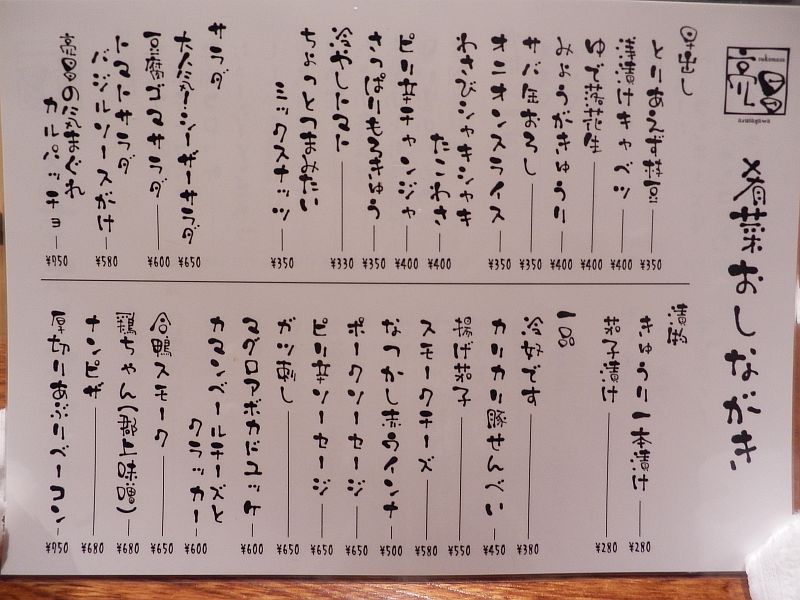 亮昌
肴菜おしながき
早出し
とりあえず枝豆 ¥350
浅漬けキャベツ ¥400
ゆで落花生 ¥400
みょうがきゅうり ¥400
サバ缶おろし ¥350
オニオンスライス ¥350
わさびシャキシャキ
たこわさ ¥400
ピリ辛チャンジャ ¥400
さっぱりもろきゅう ¥350
冷やしトマト ¥330
ちょっとつまみたい
ミックスナッツ ¥350
サラダ
大人気!シーザーサラダ ¥650
豆腐ゴマサラダ ¥600
トマトサラダ
バジルソースがけ ¥580
亮昌の気まぐれ
カルパッチョ ¥950
漬物
きゅうり一本漬け ¥280
茄子漬け ¥280
一品
冷奴です ¥380
カリカリ豚せんべい ¥450
揚げ茄子 ¥550
スモークチーズ ¥580
なつかし赤ウインナー ¥500
ポークソーセージ ¥650
ピリ辛ソーセージ ¥650
ガツ刺し ¥650
マグロアボカドユッケ ¥600
カマンベールチーズと
クラッカー ¥600
合鴨スモーク ¥650
鶏ちゃん(郡上味噌) ¥680
ナンピザ ¥680
厚切りあぶりベーコン ¥950